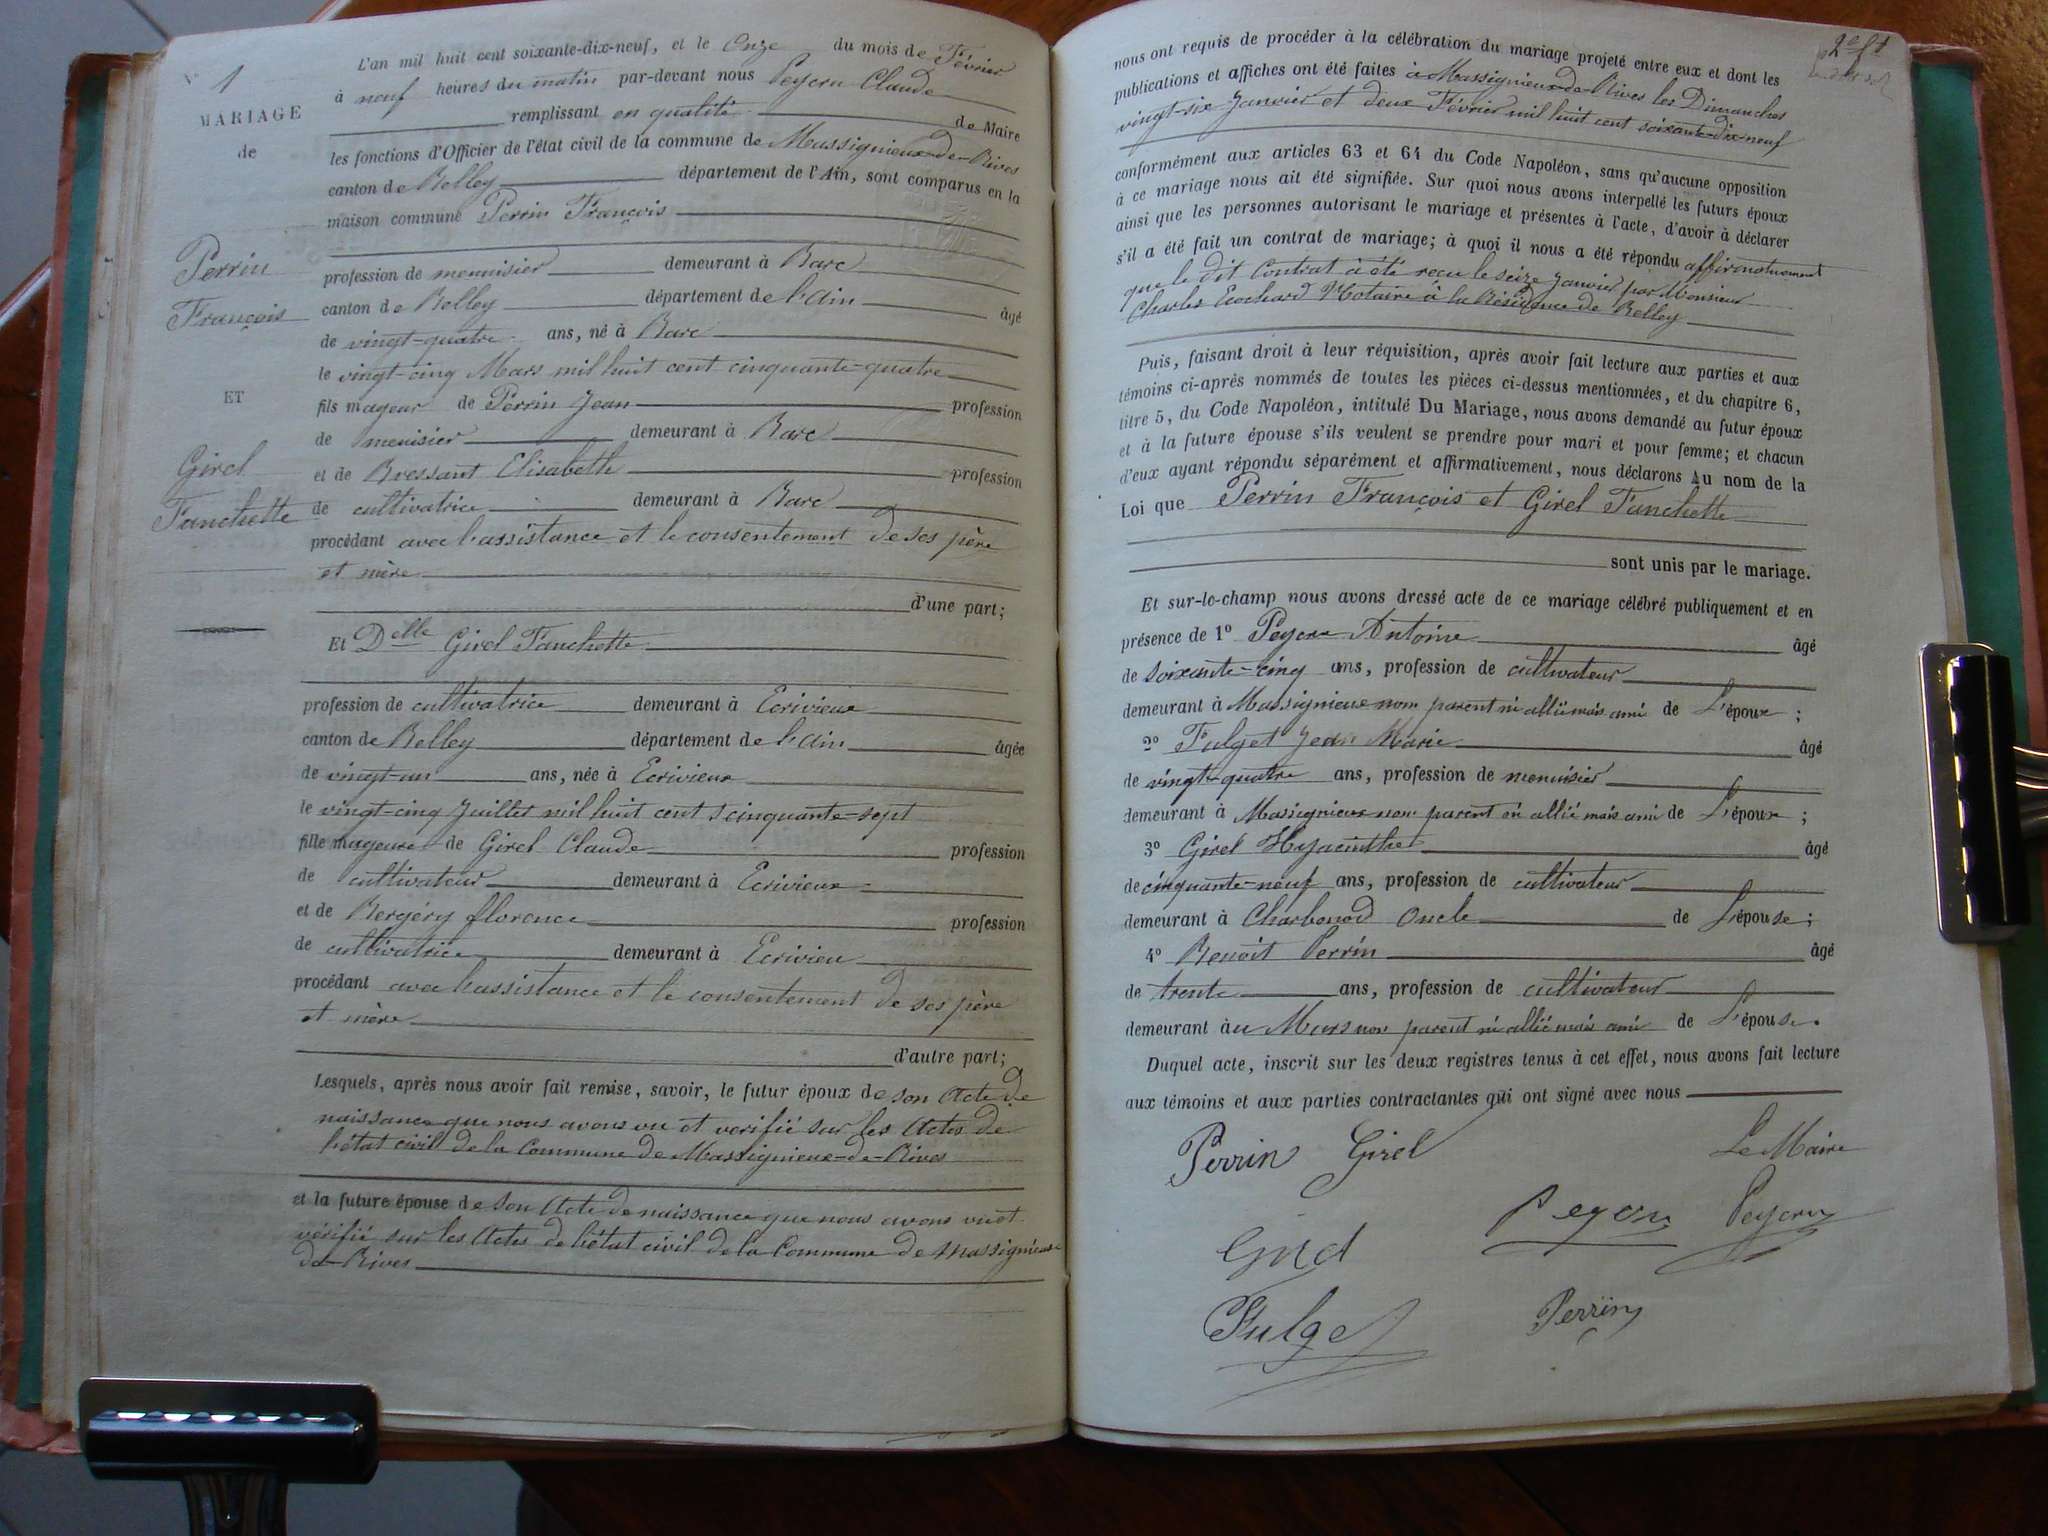 N° 1
MARIAGE
de
Perrin
François
ET
Girel
Fanchette
L'an mil huit cent soixante-dix-neuf, et le Onze du mois de Février
à neuf heures du matin par-devant nous Peycru Claude
remplissant en qualité de Maire
les fonctions d'Officier de l'état civil de la commune de Massignieux-de-Rives
canton de Belley département de l'Ain, sont comparus en la
maison commune Perrin François
profession de menuisier demeurant à Barc
canton de Belley département de l'Ain âgé
de vingt-quatre ans, né à Barc
le vingt-cinq Mars mil huit cent cinquante-quatre
fils mageur de Perrin Jean profession
de menisier demeurant à Barc
et de Bressant Elisabeth profession
de cultivatrice demeurant à Barc
procédant avec l'assistance et le consentement de ses père
et mère
d'une part;
Et Delle Girel Fanchette
profession de cultivatrice demeurant à Ecrivieux
canton de Belley département de l'Ain âgée
de vingt-un ans, née à Ecrivieux
le vingt-cinq Juillet mil huit cent cinquante-sept
fille mageure de Girel Claude profession
de cultivateur demeurant à Ecrivieux
et de Bergéry florence profession
de cultivatrice demeurant à Ecrivieu
procédant avec l'assistance et le consentement de ses père
et mère
d'autre part;
Lesquels, après nous avoir fait remise, savoir, le futur époux de son Acte de
naissance que nous avons vu et verifié sur les Actes de
l'état civil de la Commune de Massignieux-de-Rives
et la future épouse de son Acte de naissance que nous avons vu et
vérifié sur les Actes de l'état civil de la Commune de Massignieux
de-Rives
2e ft
nous ont requis de procéder à la célébration du mariage projeté entre eux et dont les
publications et affiches ont été faites à Massignieux-de-Rives les Dimanches
vingt-six Janvier et deux Février mil huit cent soixante-dix-neuf
conformément aux articles 63 et 64 du Code Napoléon, sans qu'aucune opposition
à ce mariage nous ait été signifiée. Sur quoi nous avons interpellé les futurs époux
ainsi que les personnes autorisant le mariage et présentes à l'acte, d'avoir à déclarer
s'il a été fait un contrat de mariage; à quoi il nous a été répondu affirmativement
que le dit Contrat à été reçu le seize Janvier par Monsieur
Charles Ecochard Notaire à la Résidence de Belley
Puis, faisant droit à leur réquisition, après avoir fait lecture aux parties et aux
témoins ci-après nommés de toutes les pièces ci-dessus mentionnées, et du chapitre 6,
titre 5, du Code Napoléon, intitulé Du Mariage, nous avons demandé au futur époux
et à la future épouse s'ils veulent se prendre pour mari et pour femme; et chacun
d'eux ayant répondu séparément et affirmativement, nous déclarons Au nom de la
Loi que Perrin François et Girel Fanchette
sont unis par le mariage.
Et sur-le-champ nous avons dressé acte de ce mariage célébré publiquement et en
présence de 1° Peycru Antoine âgé
de soixante-cinq ans, profession de cultivateur
demeurant à Massignieux non parent ni allié mais ami de L'époux;
2° Fulget Jean Marie âgé
de vingt-quatre ans, profession de menuisier
demeurant à Massignieux non parent ni allié mais ami de L'époux;
3° Girel Hyacinthe âgé
de cinquante-neuf ans, profession de cultivateur
demeurant à Charbonod Oncle de L'épouse;
4° Benoit Perrin âgé
de trente ans, profession de cultivateur
demeurant àu Murs non parent ni allié mais ami de L'épouse.
Duquel acte, inscrit sur les deux registres tenus à cet effet, nous avons fait lecture
aux témoins et aux parties contractantes qui ont signé avec nous
Perrin Girel Le Maire
Peycru Peycru
Girel
Fulget Perrin